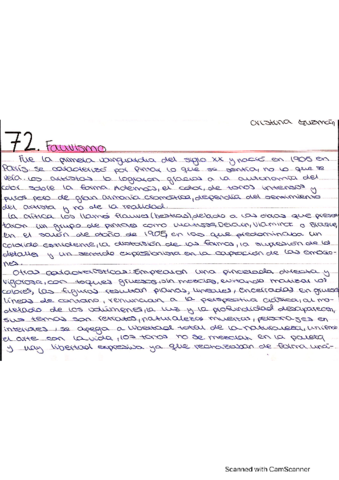 Cristina Guzmán
72. Fauvismo
Fue la primera vanguardia del siglo XX y nació en 1905 en
París se caracterizó por pintar lo que se sentía, no lo que se
veía. Los artistas lo lograron gracias a la autonomía del
color sobre la forma. Además, el color, de tonos intensos y
puros pero de gran armonía cromática, dependía del sentimiento
del artista y no de la realidad.
La crítica los llamó Fauves (bestias), debido a las obras que presen-
taron un grupo de pintores como Matisse, Derain, Vlaminck o Braque
en el salón de otoño de 1905, en las que predominaba un
colorido estridente, la distorsión de las formas, la supresión de los
detalles y un sentido expresionista en la captación de las emocio-
nes.
Otras características: Emplearon una pincelada directa y
vigorosa, con toques gruesos, sin mezclas, evitando matizar los
colores, las figuras resultan planas, lineales, encerradas en gruesas
líneas de contorno, renuncian a la perspectiva clásica, al mo-
delado de los volúmenes, la luz y la profundidad desaparecen,
sus temas son retratos, naturalezas muertas, paisajes en
interiores, se apega a libertad total de la naturaleza, uniendo
el arte con la vida, los tonos no se mezclan en la paleta
y hay libertad expresiva ya que
Scanned with CamScanner